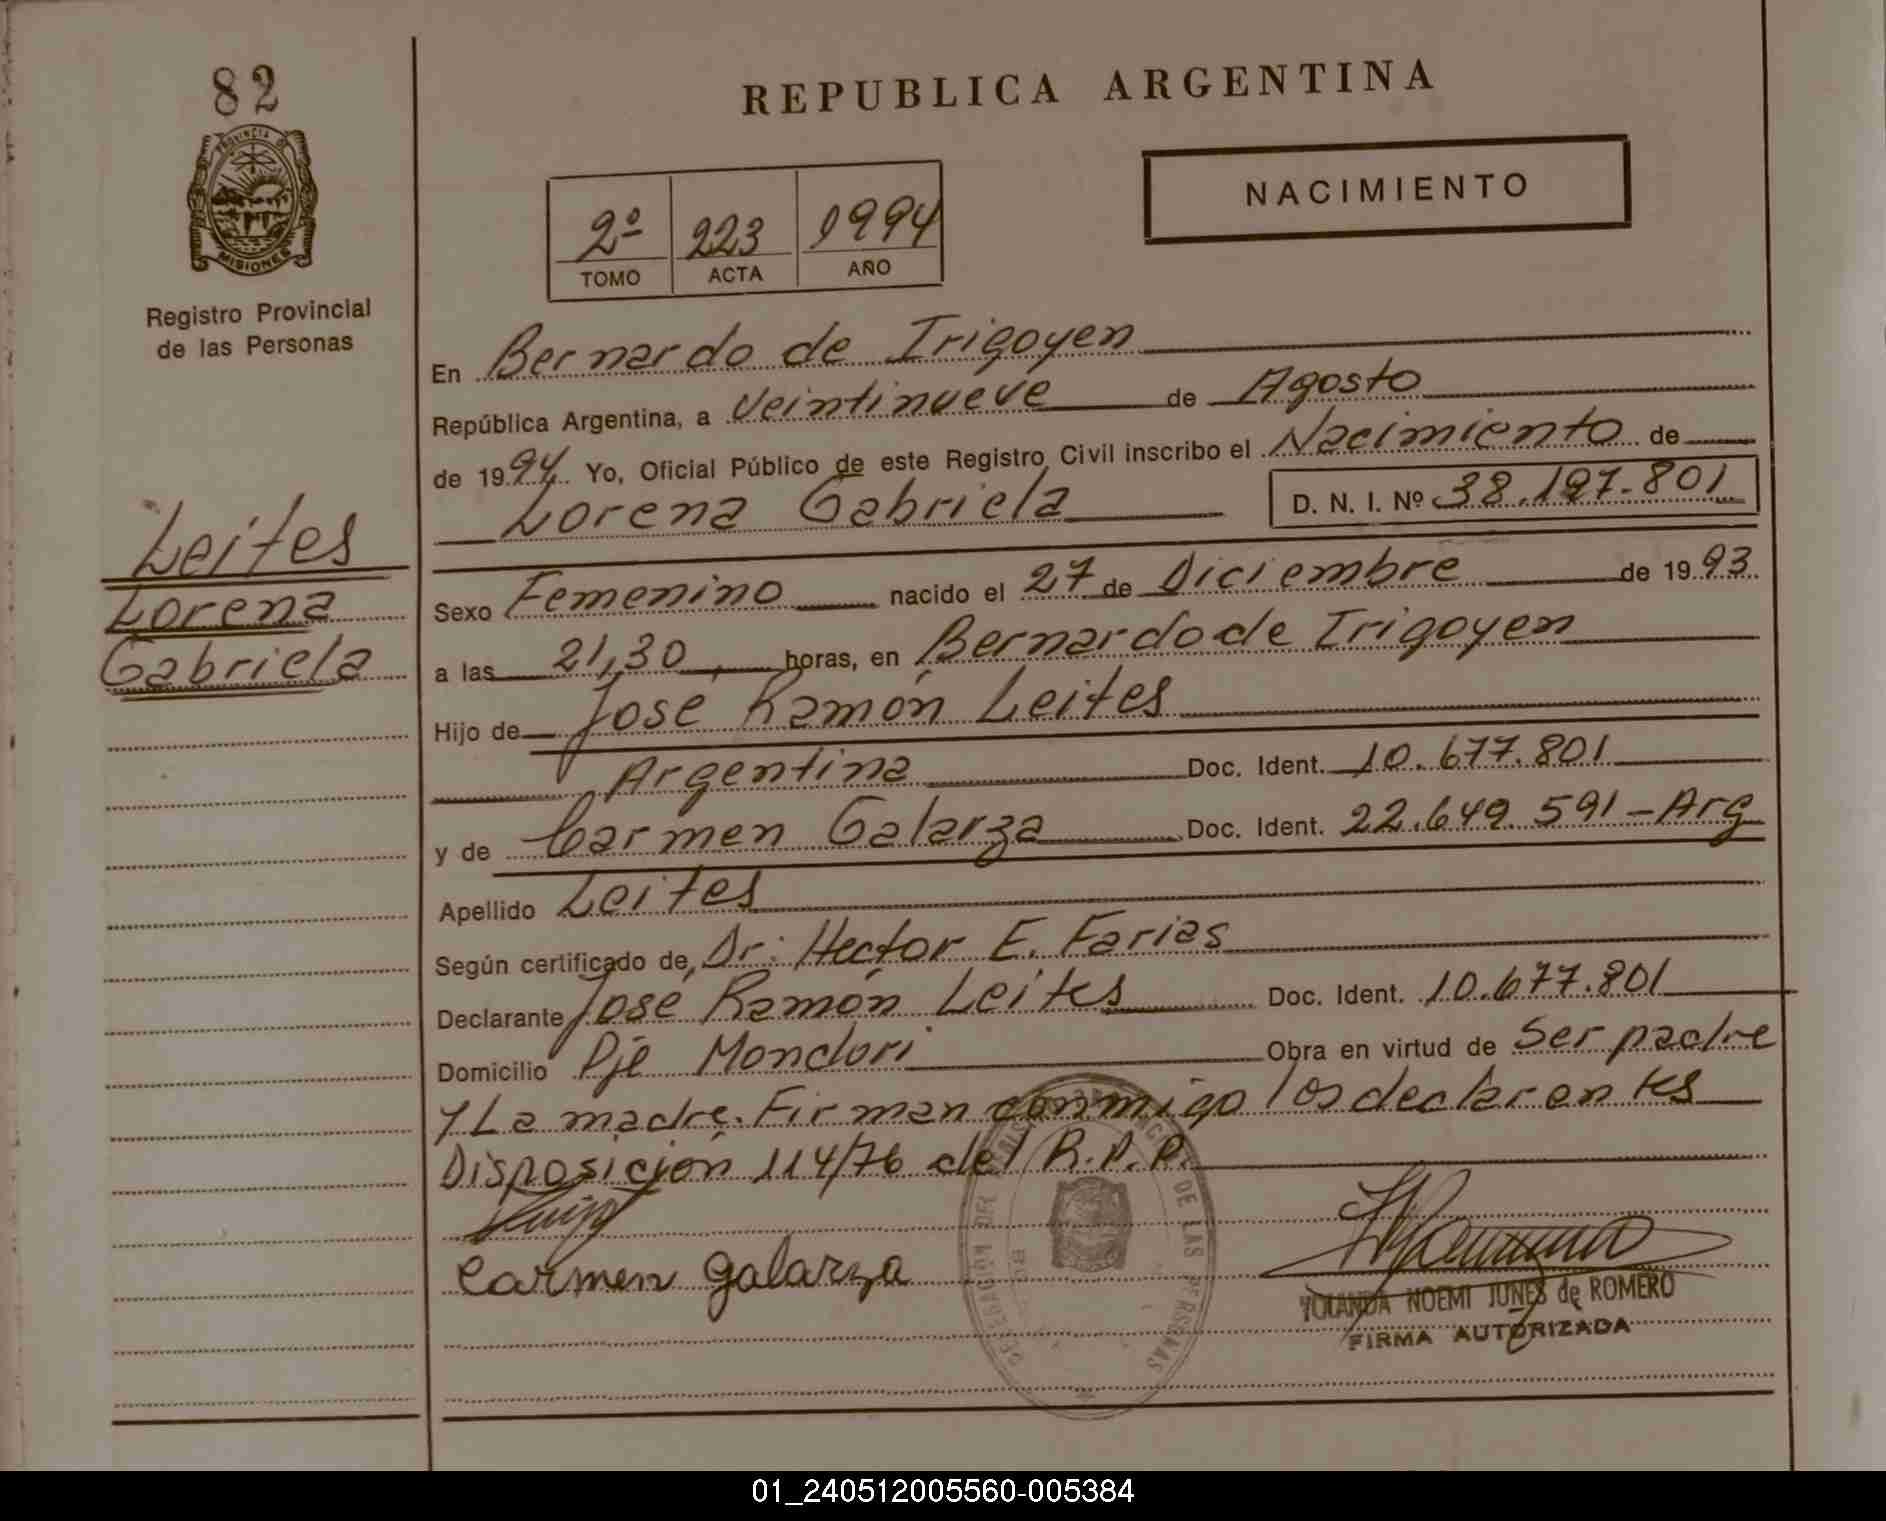 82
PROVINCIA DE
MISIONES
Registro Provincial
de las Personas
Leites
Lorena
Gabriela
REPUBLICA ARGENTINA
NACIMIENTO
2º 223 1994
TOMO ACTA AÑO
En Bernardo de Irigoyen
República Argentina, a Veintinueve de Agosto
de 1994. Yo, Oficial Público de este Registro Civil inscribo el Nacimiento de
Lorena Gabriela D. N. I. Nº 38.197.801
Sexo Femenino nacido el 27 de Diciembre de 1993
a las 21,30 horas, en Bernardo de Irigoyen
Hijo de José Ramón Leites
Argentina Doc. Ident. 10.677.801
y de Carmen Galarza Doc. Ident. 22.649.591-Arg
Apellido Leites
Según certificado de Dr: Hector E. Farias
Declarante José Ramón Leites Doc. Ident. 10.677.801
Domicilio Pje Mondori Obra en virtud de Ser padre
y La madre. Firman conmigo los declarantes
Disposición 114/76 del R.P.P.
Carmen Galarza
DELEGACION DEL REGISTRO PROVINCIAL DE LAS PERSONAS
YOLANDA NOEMI JUNES de ROMERO
FIRMA AUTORIZADA
01_240512005560-005384